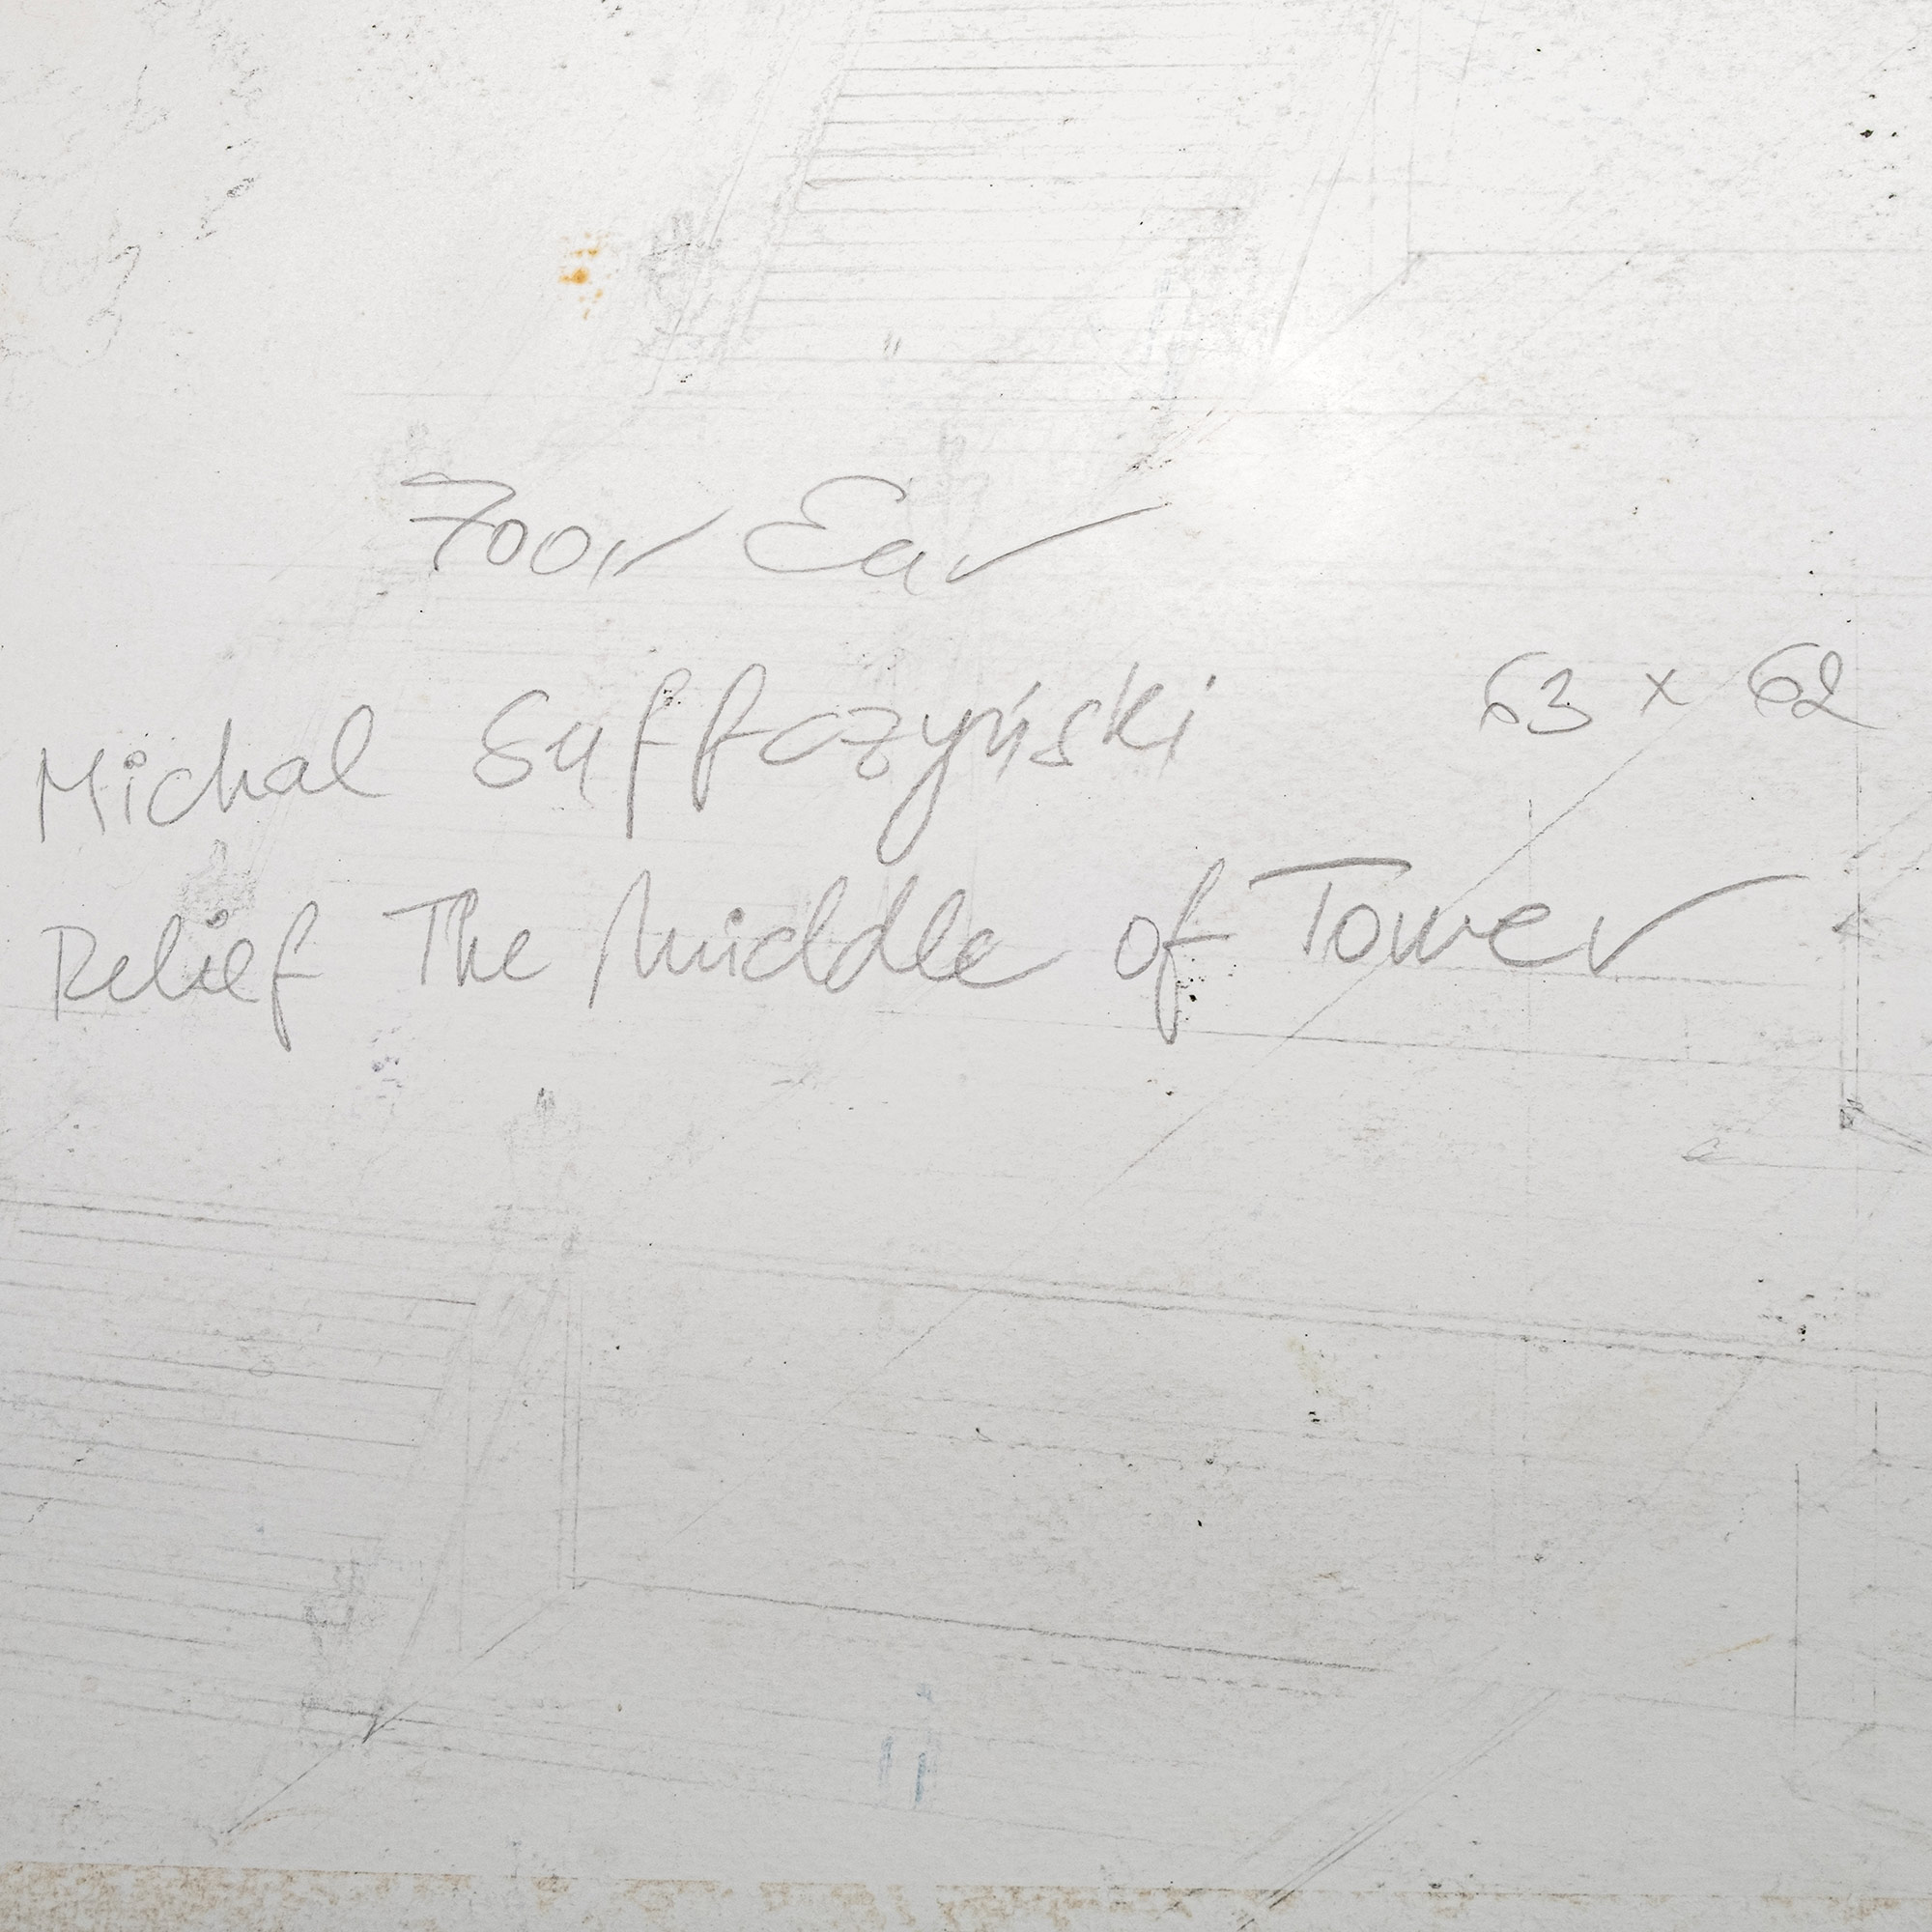 700,- Eur
Michal Suffczyński 63 x 62
Relief The Middle of Tower